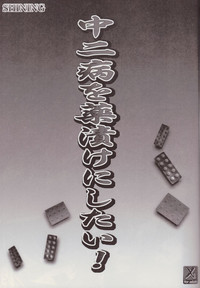 SHINING
中二病を薬漬けにしたい!